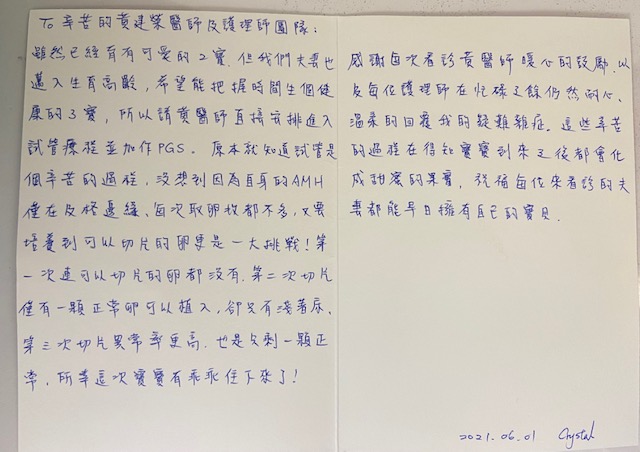 To 辛苦的黃建榮醫師及護理師團隊:
雖然已經育有可愛的2寶,但我們夫妻也
邁入生育高齡,希望能把握時間生個健
康的3寶,所以請黃醫師直接安排進入
試管療程並加作PGS。原本就知道試管是
個辛苦的過程,沒想到因為自身的AMH
僅在及格邊緣、每次取卵枚都不多,又要
培養到可以切片的卵更是一大挑戰!第
一次連可以切片的卵都沒有.第二次切片
僅有一顆正常卵可以植入,卻只有淺著床、
第三次切片異常率更高.也是只剩一顆正
常,所幸這次寶寶有乖乖住下來了!
感謝每次看診黃醫師暖心的鼓勵.以
及每位護理師在忙碌之餘仍然耐心、
溫柔的回覆我的疑難雜症。這些辛苦
的過程在得知寶寶到來之後都會化
成甜蜜的果實,祝福每位來看診的夫
妻都能早日擁有自己的寶貝.
2021.06.01 Crystal